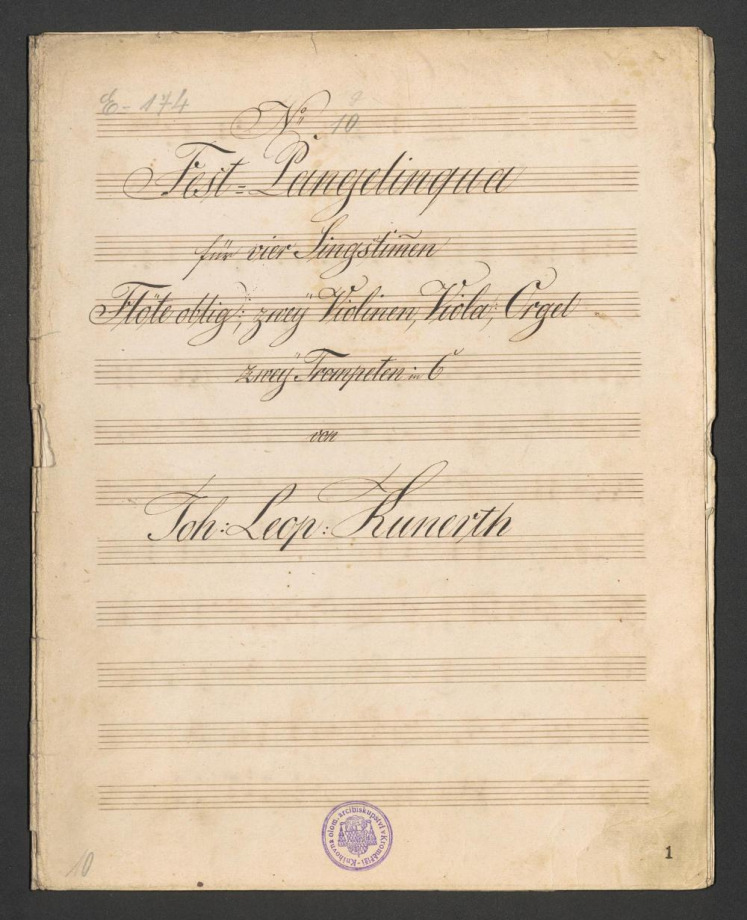 E-174
No 10
Fest=Pangelinqua
für vier Singstim̄en
Flöte oblig:, zwey Violinen, Viola, Orgel
zwey Trompeten in C
von
Joh: Leop: Kunerth
Knihovna olom. arcibiskupství v Kroměříži
10
1